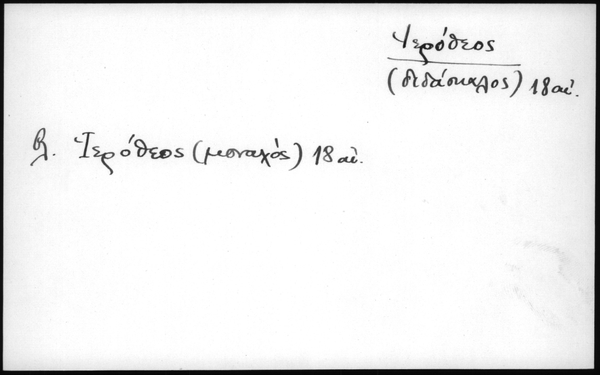 Ἱερόθεος
(διδάσκαλος) 18 αἰ.
βλ. Ἱερόθεος (μοναχός) 18 αἰ.